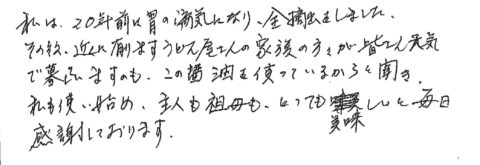 私は、20年前に胃の病気になり、全摘出をしました。
その後、近くに有りますうどん屋さんの家族の方々が皆さん元気
で暮らしますのも、この醤油を使っているからと聞き、
私も使い始め、主人も祖母も、とっても美味しいと毎日
感謝しております。